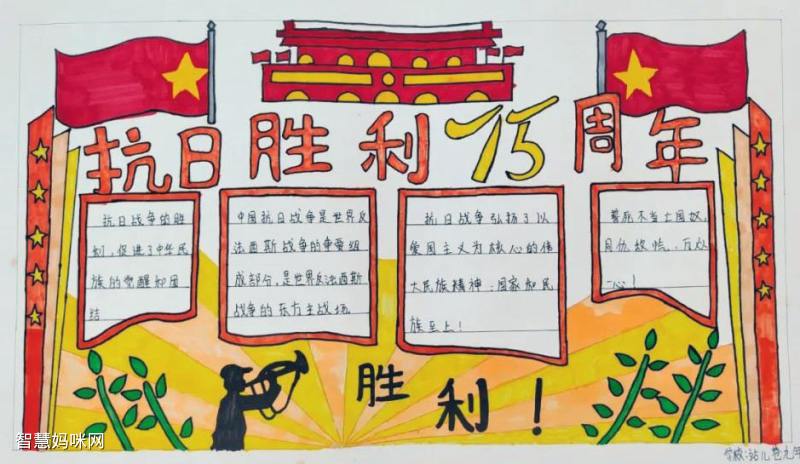 抗日胜利75周年
抗日战争的胜
利,促进了中华民
族的觉醒和团
结
中国抗日战争是世界反
法西斯战争的重要组
成部分,是世界反法西斯
战争的东方主战场
抗日战争弘扬了以
爱国主义为核心的伟
大民族精神:国家和民
族至上!
誓死不当亡国奴,
同仇敌忾,万众
一心!
胜利!
智慧妈咪网